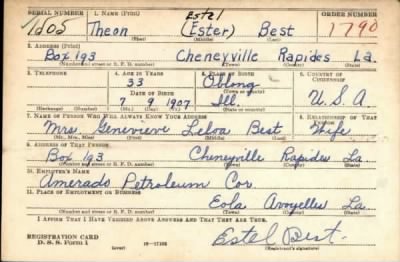 SERIAL NUMBER 1. NAME (Print) ORDER NUMBER
Estel
1505 Theon (Ester) Best 1790
(First) (Middle) (Last)
2. ADDRESS (Print)
Box 193 Cheneyville Rapides La.
(Number and street or R. F. D. number) (Town) (County) (State)
3. TELEPHONE 4. AGE IN YEARS 5. PLACE OF BIRTH 6. COUNTRY OF CITIZENSHIP
33 Oblong
DATE OF BIRTH (Town or county)
7 9 1907 Ill. U.S.A
(Exchange) (Number) (Mo.) (Day) (Yr.) (State or country)
7. NAME OF PERSON WHO WILL ALWAYS KNOW YOUR ADDRESS 8. RELATIONSHIP OF THAT PERSON
Mrs. Genevieve Leloa Best Wife
(Mr., Mrs., Miss) (First) (Middle) (Last)
9. ADDRESS OF THAT PERSON
Box 193 Cheneyville Rapides La.
(Number and street or R. F. D. number) (Town) (County) (State)
10. EMPLOYER'S NAME
Amerado Petroleum Cor
11. PLACE OF EMPLOYMENT OR BUSINESS
Eola Avoyelles La.
(Number and street or R. F. D. number) (Town) (County) (State)
I AFFIRM THAT I HAVE VERIFIED ABOVE ANSWERS AND THAT THEY ARE TRUE.
REGISTRATION CARD
D. S. S. Form 1 (over) 16—17105 Estel Best.
(Registrant's signature)